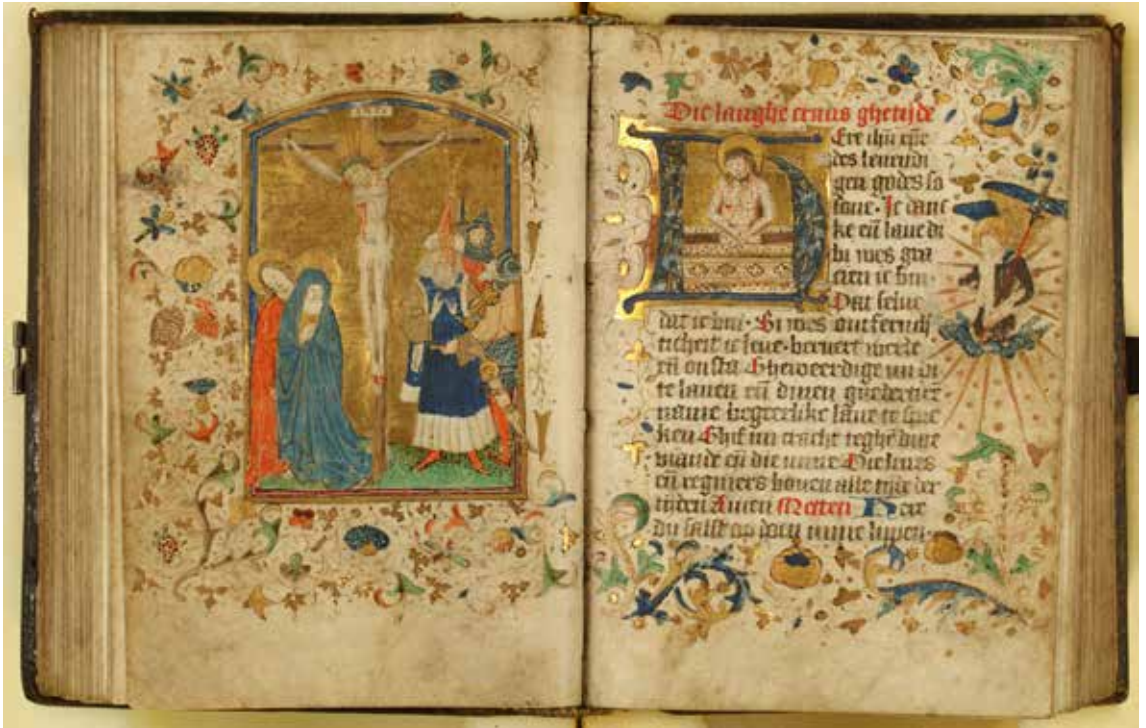 Die langhe cruus ghetijde
Ere ihu xpe
des leuendi
gen godes so
sone · Ic danc
ke eñ laue di
bi wes gra
cien ic bin ·
Dat selue
dat ic bin · Bi wes
ticheit ic leue · beruert werde
eñ Gheweerdige mi di
te lauen eñ dinen
name begeerlike laue te spre
ken Ghif mi cracht teghē dine
viande eñ die mine Die leues
eñ regniers bouen alle tide der
tiden Amen Metten Here
du salst op doen mine lippen ·